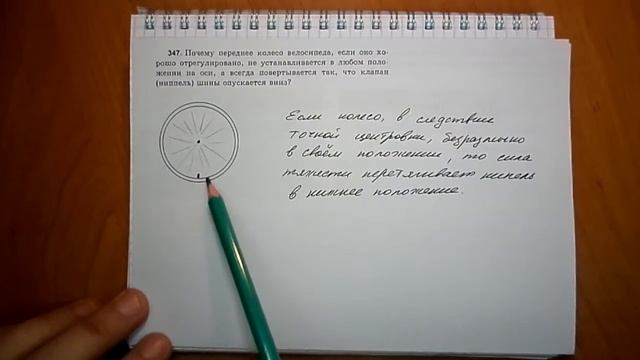 347. Почему переднее колесо велосипеда, если оно хо-
рошо отрегулировано, не устанавливается в любом поло-
жении на оси, а всегда повертывается так, что клапан
(ниппель) шины опускается вниз?
Если колесо, в следствие
точной центровки, безразлично
в своём положении, то сила
тяжести перетягивает нипель
в нижнее положение.